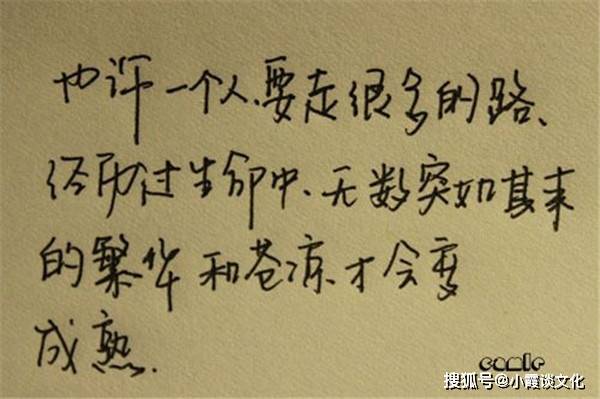 也许一个人、要走很多的路、
经历过生命中、无数突如其来
的繁华和苍凉、才会变
成熟.
comic
搜狐号@小霞谈文化